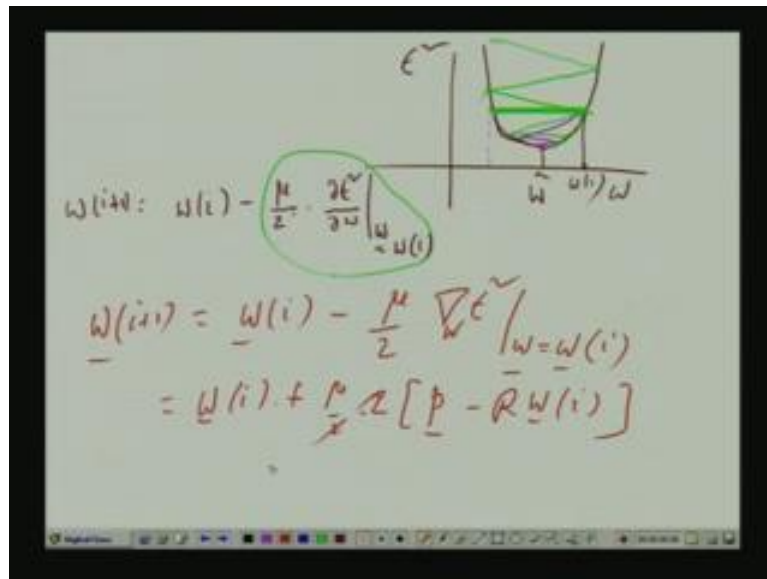 ε²
w̃ w(i) w
w(i+1) = w(i) - μ/2 · ∂ε²/∂w |w = w(i)
w(i+1) = w(i) - μ/2 ∇w ε² |w = w(i)
= w(i) + μ/2 2 [p - R w(i)]